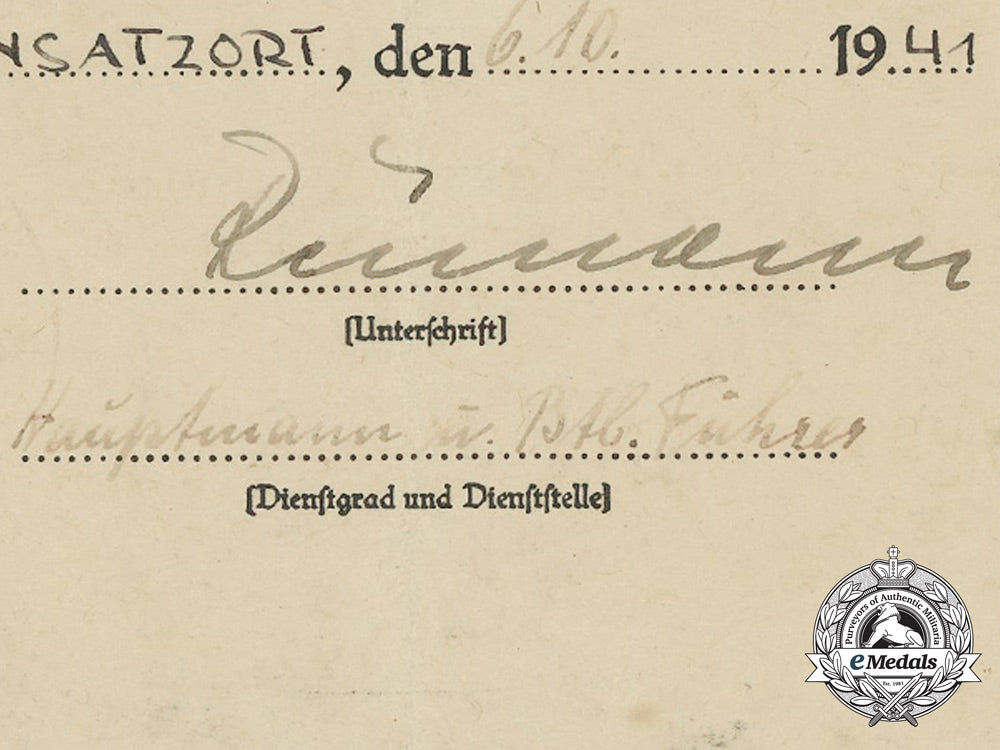 NSATZORT, den 6.10. 1941
Rümann
(Unterschrift)
Hauptmann u. Btl. Führer
(Dienstgrad und Dienststelle)
Purveyors of Authentic Militaria
eMedals
Est. 1981